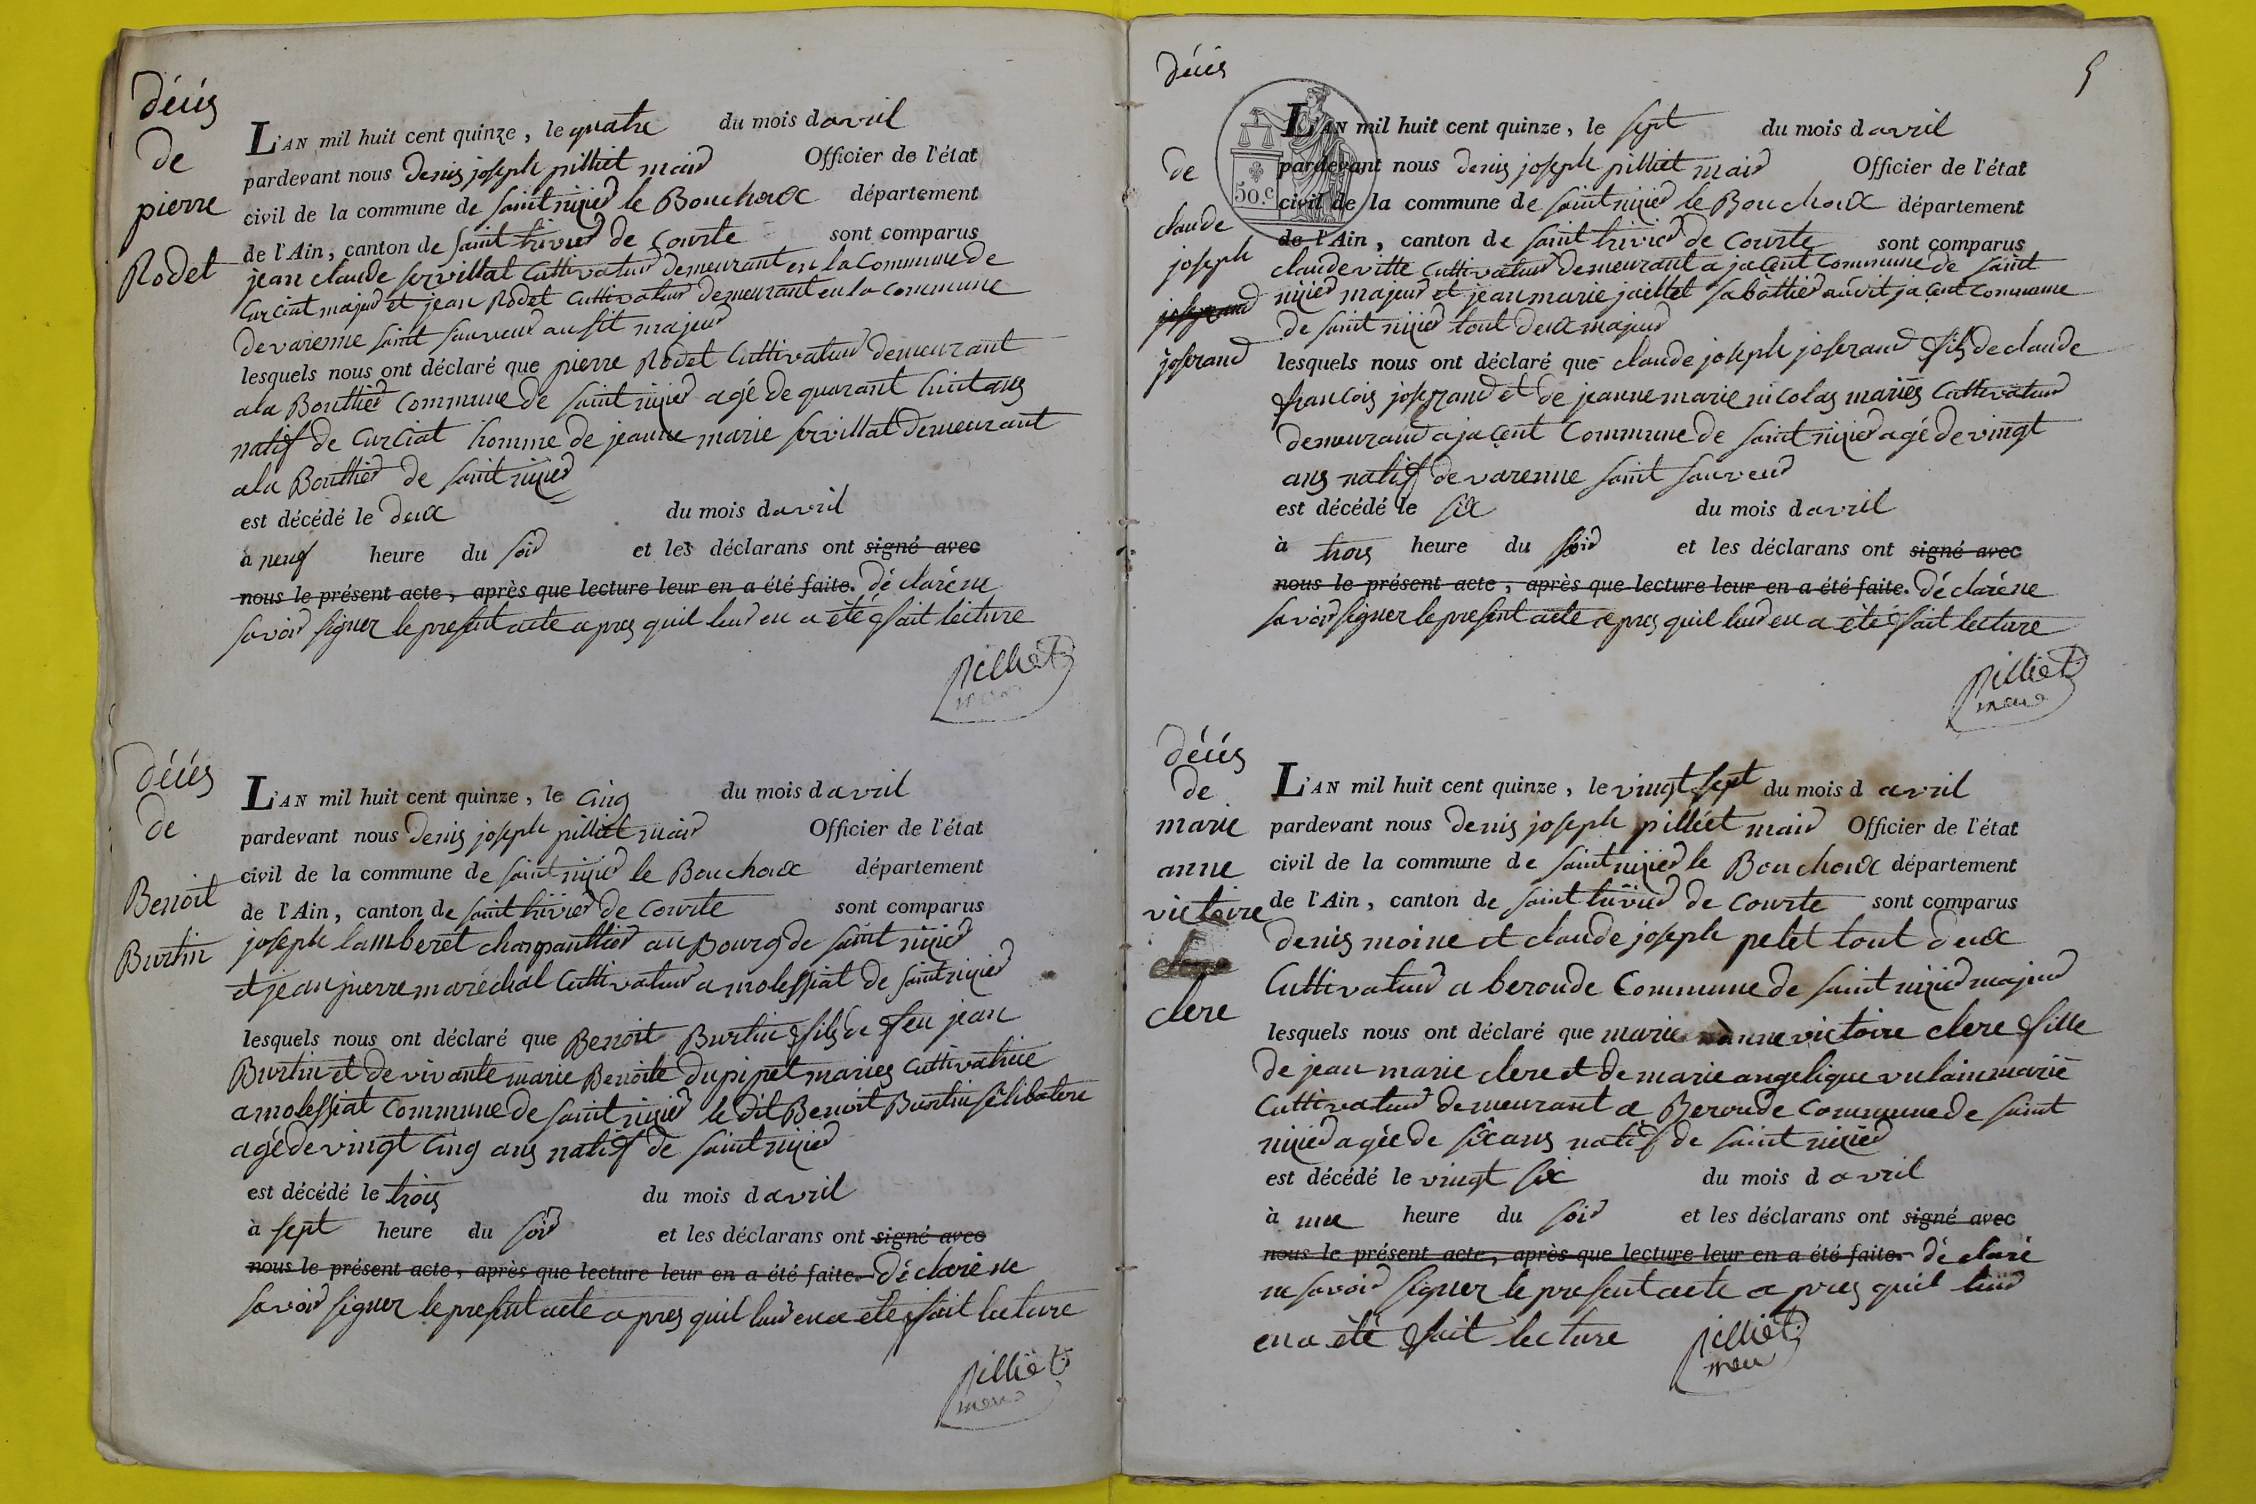 décés
de
pierre
Rodet
L'AN mil huit cent quinze, le quatre du mois d avril
pardevant nous denis joseph pilliet maire Officier de l'état
civil de la commune de saint nizier le Bouchoux département
de l'Ain, canton de saint trivier de Courte sont comparus
jean claude servillat Cultivateur demeurant en la Commune de
Curciat majeur et jean Rodet Cultivateur demeurant en la commune
de varenne saint sauveur aussit majeur
lesquels nous ont déclaré que pierre Rodet Cultivateur demeurant
a la Bouthier Commune de saint nizier agé de quarant huit ans
natif de Curciat homme de jeanne marie servillat demeurant
a la Bouthier de saint nizier
est décédé le deux du mois d avril
à neuf heure du soir et les déclarans ont signé avec
nous le présent acte, après que lecture leur en a été faite. déclaré ne
savoir signer le present acte apres quil leur en a été fait lecture
pilliet
maire
décés
de
Benoit
Burtin
L'AN mil huit cent quinze, le cinq du mois d avril
pardevant nous denis joseph pilliet maire Officier de l'état
civil de la commune de saint nizier le Bouchoux département
de l'Ain, canton de saint trivier de Courte sont comparus
joseph lamberet charpanttier au Bourg de saint nizier
et jean pierre maréchal Cultivateur a molessiat de saint nizier
lesquels nous ont déclaré que Benoit Burtin fils de feu jean
Burtin et de vivante marie Benoite dupipet maries Cultivatrice
a molessiat Commune de saint nizier le dit Benoit Burtin sélibatere
agé de vingt cinq ans natif de saint nizier
est décédé le trois du mois d avril
à sept heure du soir et les déclarans ont signé avec
nous le présent acte, après que lecture leur en a été faite. déclaré ne
savoir signer le present acte apres quil leur en a été fait lecture
pilliet
maire
5
décés
de
claude
joseph
joserand
L'AN mil huit cent quinze, le sept du mois d avril
pardevant nous denis joseph pilliet maire Officier de l'état
50. c
civil de la commune de saint nizier le Bouchoux département
de l'Ain, canton de saint trivier de Courte sont comparus
claude vitte Cultivateur demeurant a jaçent Commune de saint
nizier majeur et jean marie jaillet sabottier audit jaçent commune
de saint nizier tout deux majeur
lesquels nous ont déclaré que claude joseph joserand fils de claude
françois joserand et de jeanne marie nicolas mariés Cultivateur
demeurant a jaçent Commune de saint nizier agé de vingt
ans natif de varenne saint sauveur
est décédé le six du mois d avril
à trois heure du soir et les déclarans ont signé avec
nous le présent acte, après que lecture leur en a été faite. déclaré ne
savoir signer le present acte apres quil leur en a été fait lecture
pilliet
maire
décés
de
marie
anne
victoire
clere
L'AN mil huit cent quinze, le vingt sept du mois d avril
pardevant nous denis joseph pilliet maire Officier de l'état
civil de la commune de saint nizier le Bouchoux département
de l'Ain, canton de saint trivier de Courte sont comparus
denis moine et claude joseph pelet tout deux
Cultivateur a beroude Commune de saint nizier majeur
lesquels nous ont déclaré que marie anne victoire clere fille
de jean marie clere et de marie angelique vulain marié
Cultivateur demeurant a Beroude Commune de saint
nizier agée de six ans natif de saint nizier
est décédé le vingt six du mois d avril
à une heure du soir et les déclarans ont signé avec
nous le présent acte, après que lecture leur en a été faite. déclaré
ne savoir signer le present acte apres quil leur
en a été fait lecture pilliet
maire